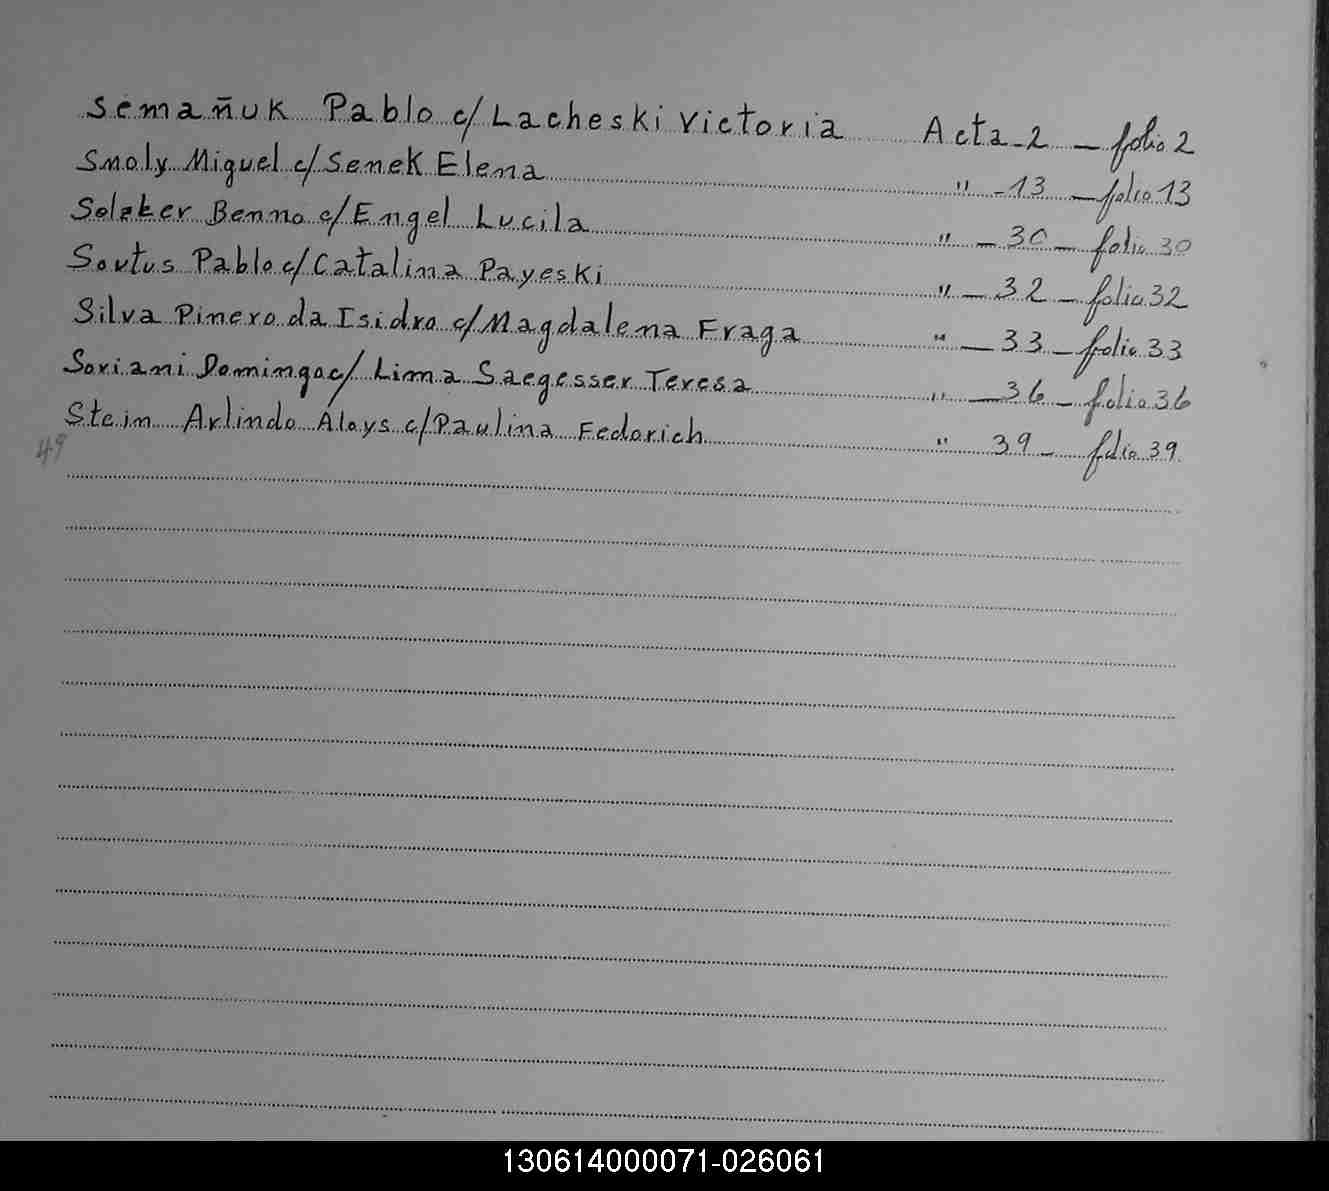 Semañuk Pablo c/ Lacheski Victoria Acta - 2 - folio 2
Smoly Miguel c/ Senek Elena " - 13 - folio 13
Benno c/ Engel Lucila " - 30 - folio 30
Soutus Pablo c/ Catalina Payeski " - 32 - folio 32
Silva Pinero da Isidro c/ Magdalena Fraga " - 33 - folio 33
Soriani Domingo c/ Lima Saegesser Teresa " - 36 - folio 36
Stein Arlindo Aloys c/ Paulina Fedorich " 39 - folio 39
49
130614000071-026061